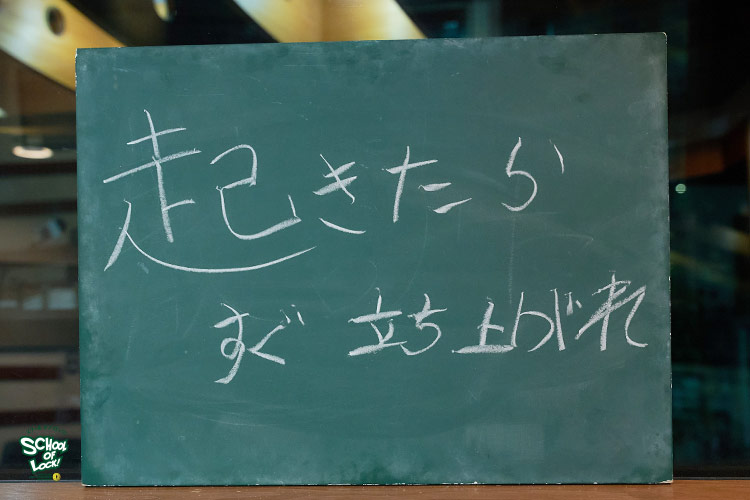 起きたか
すぐ 立ち上がれ
SCHOOL
OF
LOCK!